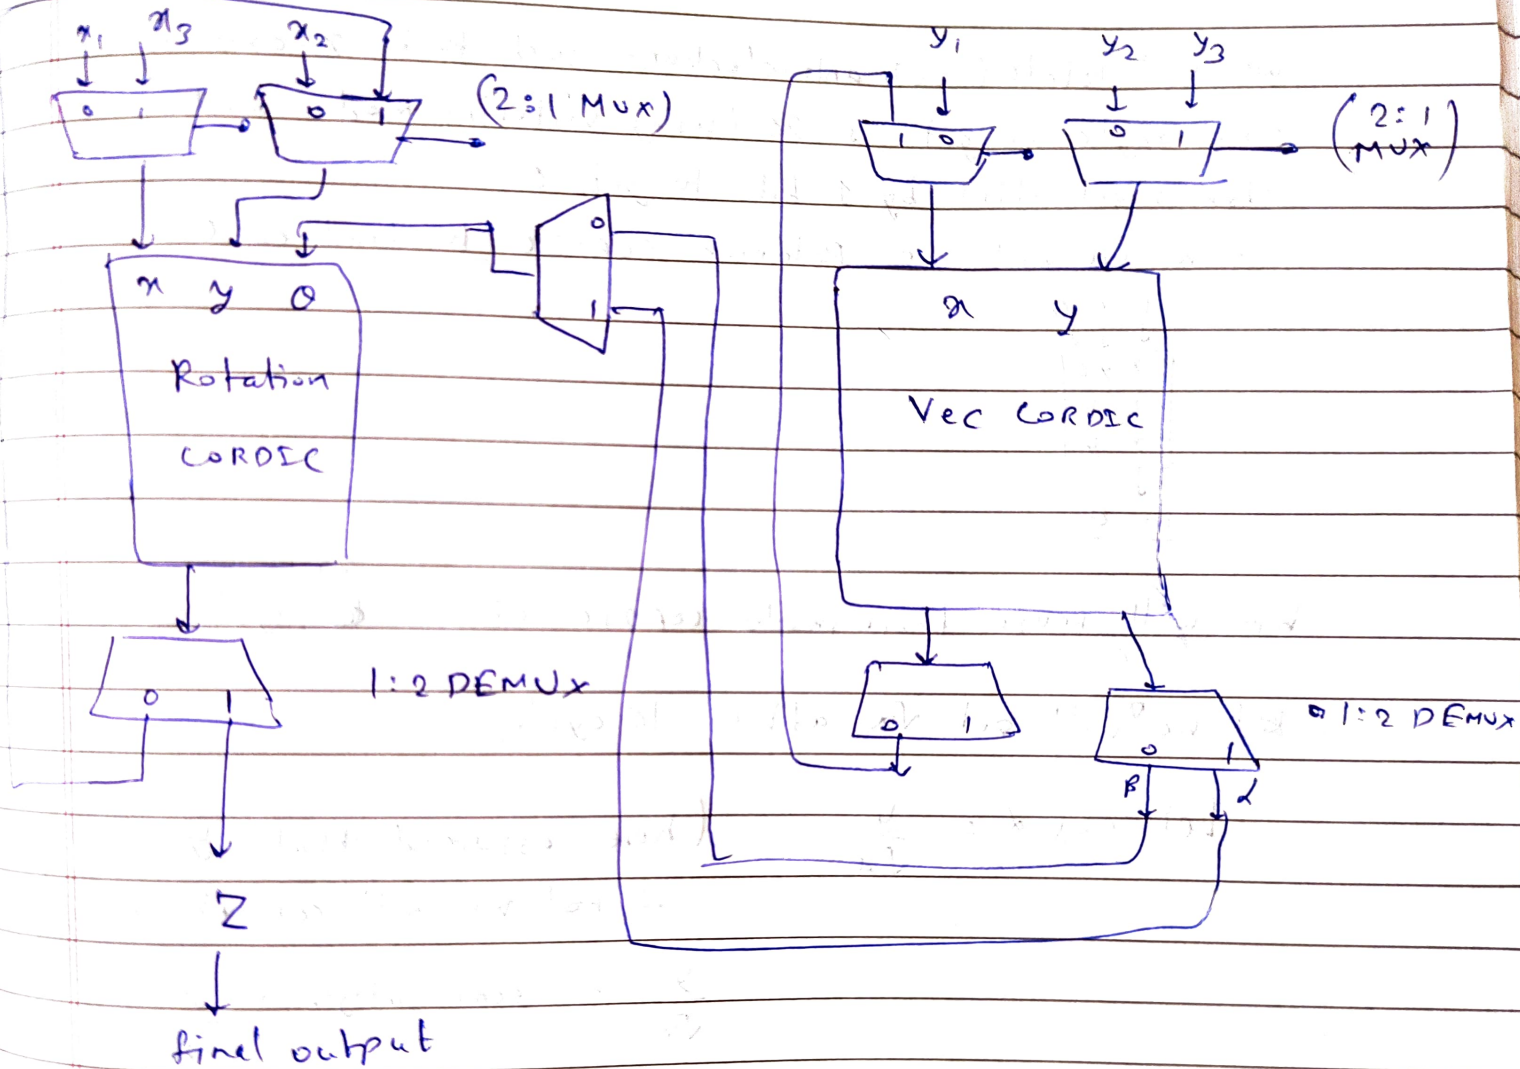 x₁ x₃ x₂
0 1 0 1
(2:1 MUX)
y₁ y₂ y₃
1 0 0 1
(2:1
MUX)
0
1
x y θ
Rotation
CORDIC
x y
Vec CORDIC
0 1
1:2 DEMUX
0 1
0 1
1:2 DEMUX
β α
Z
final output